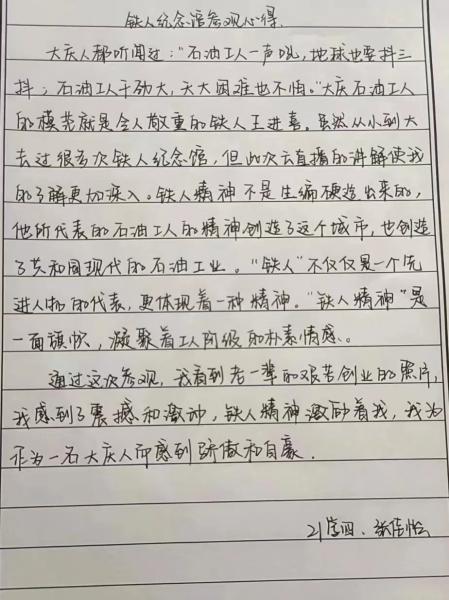 铁人纪念馆参观心得.
大庆人都听闻过："石油工人一声吼,地球也要抖三
抖;石油工人干劲大,天大困难也不怕."大庆石油工人
的模范就是令人敬重的铁人王进喜.虽然从小到大
去过很多次铁人纪念馆,但此次云直播的讲解使我
的了解更加深入。铁人精神不是生编硬造出来的,
他所代表的石油工人的精神创造了这个城市,也创造
了共和国现代的石油工业。"铁人"不仅仅是一个先
进人物的代表,更体现着一种精神。"铁人精神"是
一面旗帜,凝聚着工人阶级的朴素情感.。
通过这次参观,我看到老一辈的艰苦创业的照片,
我感到了震撼和激动,铁人精神激励着我,我为
作为一名大庆人而感到骄傲和自豪.
21学四、张佳怡